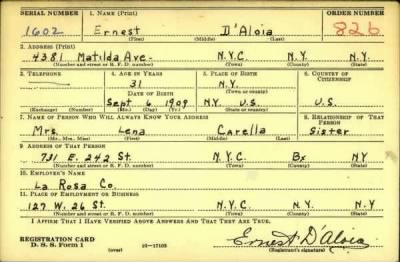 SERIAL NUMBER 1. NAME (Print) ORDER NUMBER
1602 Ernest D'Aloia 826
(First) (Middle) (Last)
2. ADDRESS (Print)
4381 Matilda Ave. N.Y.C. N.Y. N.Y.
(Number and street or R. F. D. number) (Town) (County) (State)
3. TELEPHONE 4. AGE IN YEARS 5. PLACE OF BIRTH 6. COUNTRY OF CITIZENSHIP
31 N.Y.
DATE OF BIRTH (Town or county)
Sept 6 1909 N.Y. U.S. U.S.
(Exchange) (Number) (Mo.) (Day) (Yr.) (State or country)
7. NAME OF PERSON WHO WILL ALWAYS KNOW YOUR ADDRESS 8. RELATIONSHIP OF THAT PERSON
Mrs. Lena Carella Sister
(Mr., Mrs., Miss) (First) (Middle) (Last)
9. ADDRESS OF THAT PERSON
731 E. 242 St. N.Y.C. Bx N.Y
(Number and street or R. F. D. number) (Town) (County) (State)
10. EMPLOYER'S NAME
La Rosa Co.
11. PLACE OF EMPLOYMENT OR BUSINESS
127 W. 26 St. N.Y.C. N.Y. N.Y.
(Number and street or R. F. D. number) (Town) (County) (State)
I AFFIRM THAT I HAVE VERIFIED ABOVE ANSWERS AND THAT THEY ARE TRUE.
REGISTRATION CARD
D. S. S. Form 1 (over) 16—17105 Ernest D'Aloia
(Registrant's signature)